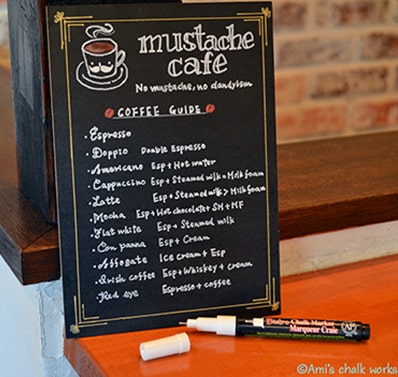 mustache
cafe
No mustache, no dandyism
COFFEE GUIDE
· Espresso
· Doppio Double Espresso
· Americano Esp + Hot water
· Cappuccino Esp + Steamed milk = Milk foam
· Latte Esp + Steamed milk > Milk foam
· Mocha Esp + Hot chocolate + SM + MF
· Flat white Esp + Steamed milk
· Con panna Esp + Cream
· Affogate Ice cream + Esp
· Irish coffee Esp + Whiskey + cream
· Red eye Espresso + coffee
Chalk Marker
Marqueur Craie
©Ami's chalk works